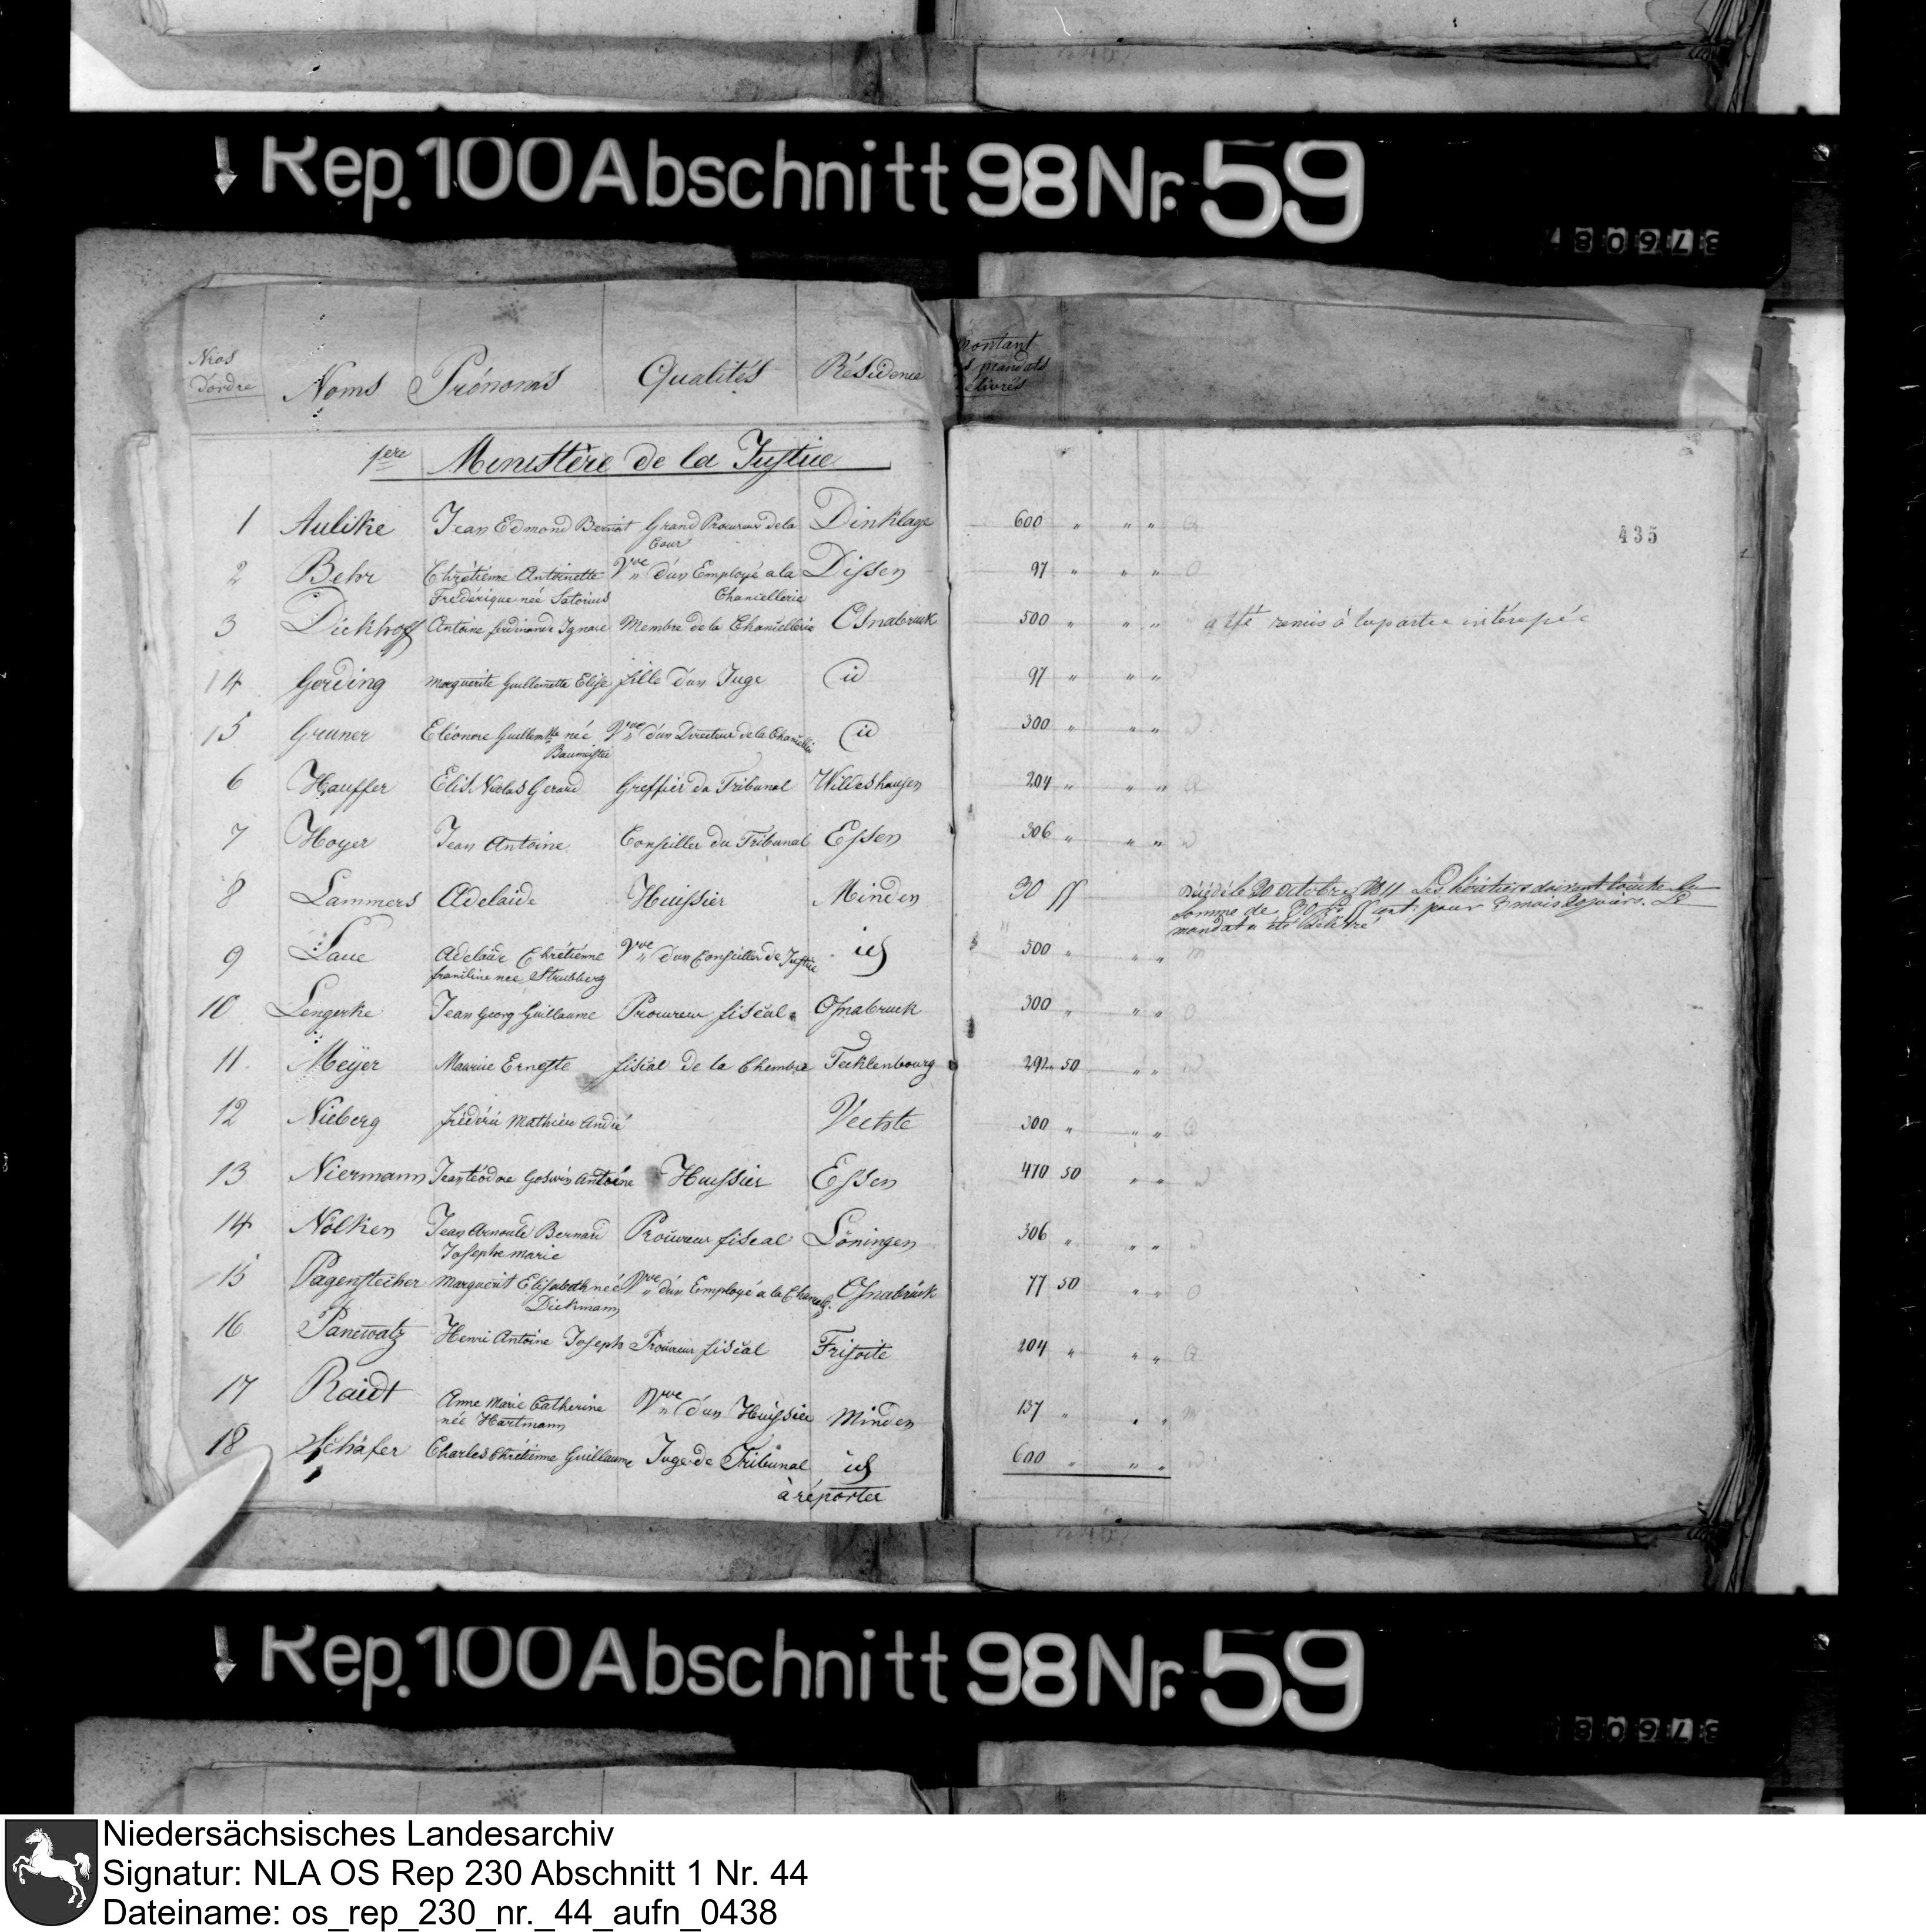 Rep. 100 Abschnitt 98 Nr. 59
Nros d'ordre Noms Prénoms Qualités Résidence Montant mandats délivrés
1ere Ministère de la Justice
435
1 Aulike Jean Edmond Grand Procureur de la Cour Dinklage 600 " " "
2 Behr Chrétienne Antoinette Frédérique née Satorius Vve d'un Employé a la Chancellerie Dissen 97 " " " O
3 Dickhoff Antoine ferdinande Ignace Membre de la Chancellerie Osnabruck 500 " " " a été remis à la partie intéressée
4 Gerding Marguerite Guillemette Elise fille d'un Juge id 97 " " "
5 Gruner Eléonore née Baumeister Vve d'un Directeur de la id 300 " " "
6 Hauffer Nicolas Gerard Greffier du Tribunal Wildeshausen 204 " " "
7 Hoyer Jean Antoine Conseiller du Tribunal Essen 306 " " "
8 Lammers Adelaide Huissier Minden 30 ff Décédé le 20 octobre 1811 Les héritiers doivent
somme de pour 3 mois Le
mandat a été délivré
9 Laue Adelaide Chrétienne née Strubberg Vve d'un Conseiller de Justice id 500 " " " m
10 Lengerke Jean Georg Guillaume Procureur fiscal Osnabruck 300 " " " O
11 Meÿer Maurice Erneste fiscal de la Chembre Tecklenbourg 292 50 " "
12 Nieberg frédéric Mathieu André Vechte 300 " " "
13 Niermann Jean téodore Goswin Antoine Huissier Essen 470 50 " "
14 Nölken Jean Arnould Bernard Josephe marie Procureur fiscal Löningen 306 " " "
15 Pagenstecher Marguerit Elisabeth née Diekmann Vve d'un Employé a la Chancell. Osnabrück 77 50 " " O
16 Panewatz Henri Antoine Joseph Procureur fiscal Frisoite 204 " " "
17 Raidt Anne Marie Catherine née Hartmann Vve d'un Huissier Minden 137 " " " m
18 Schäfer Charles Chrétienne Guillaume Juge de Tribunal id 600 " " "
à réporter
Rep. 100 Abschnitt 98 Nr. 59
Niedersächsisches Landesarchiv
Signatur: NLA OS Rep 230 Abschnitt 1 Nr. 44
Dateiname: os_rep_230_nr._44_aufn_0438